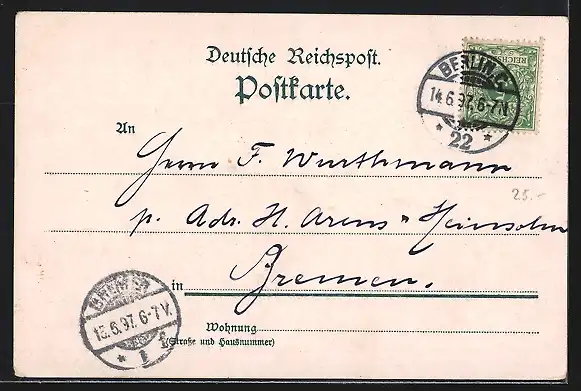 Deutsche Reichspost.
Postkarte.
BERLIN.C.
14.6.97.6-7N
* 22 *
REICHSPOST
An
Herrn F. Wurthmann
25.-
p. Adr. H. Arens & Heinsohn
in Bremen.
BREMEN
15.6.97.6-7V.
* 1 *
Wohnung
(Straße und Hausnummer)